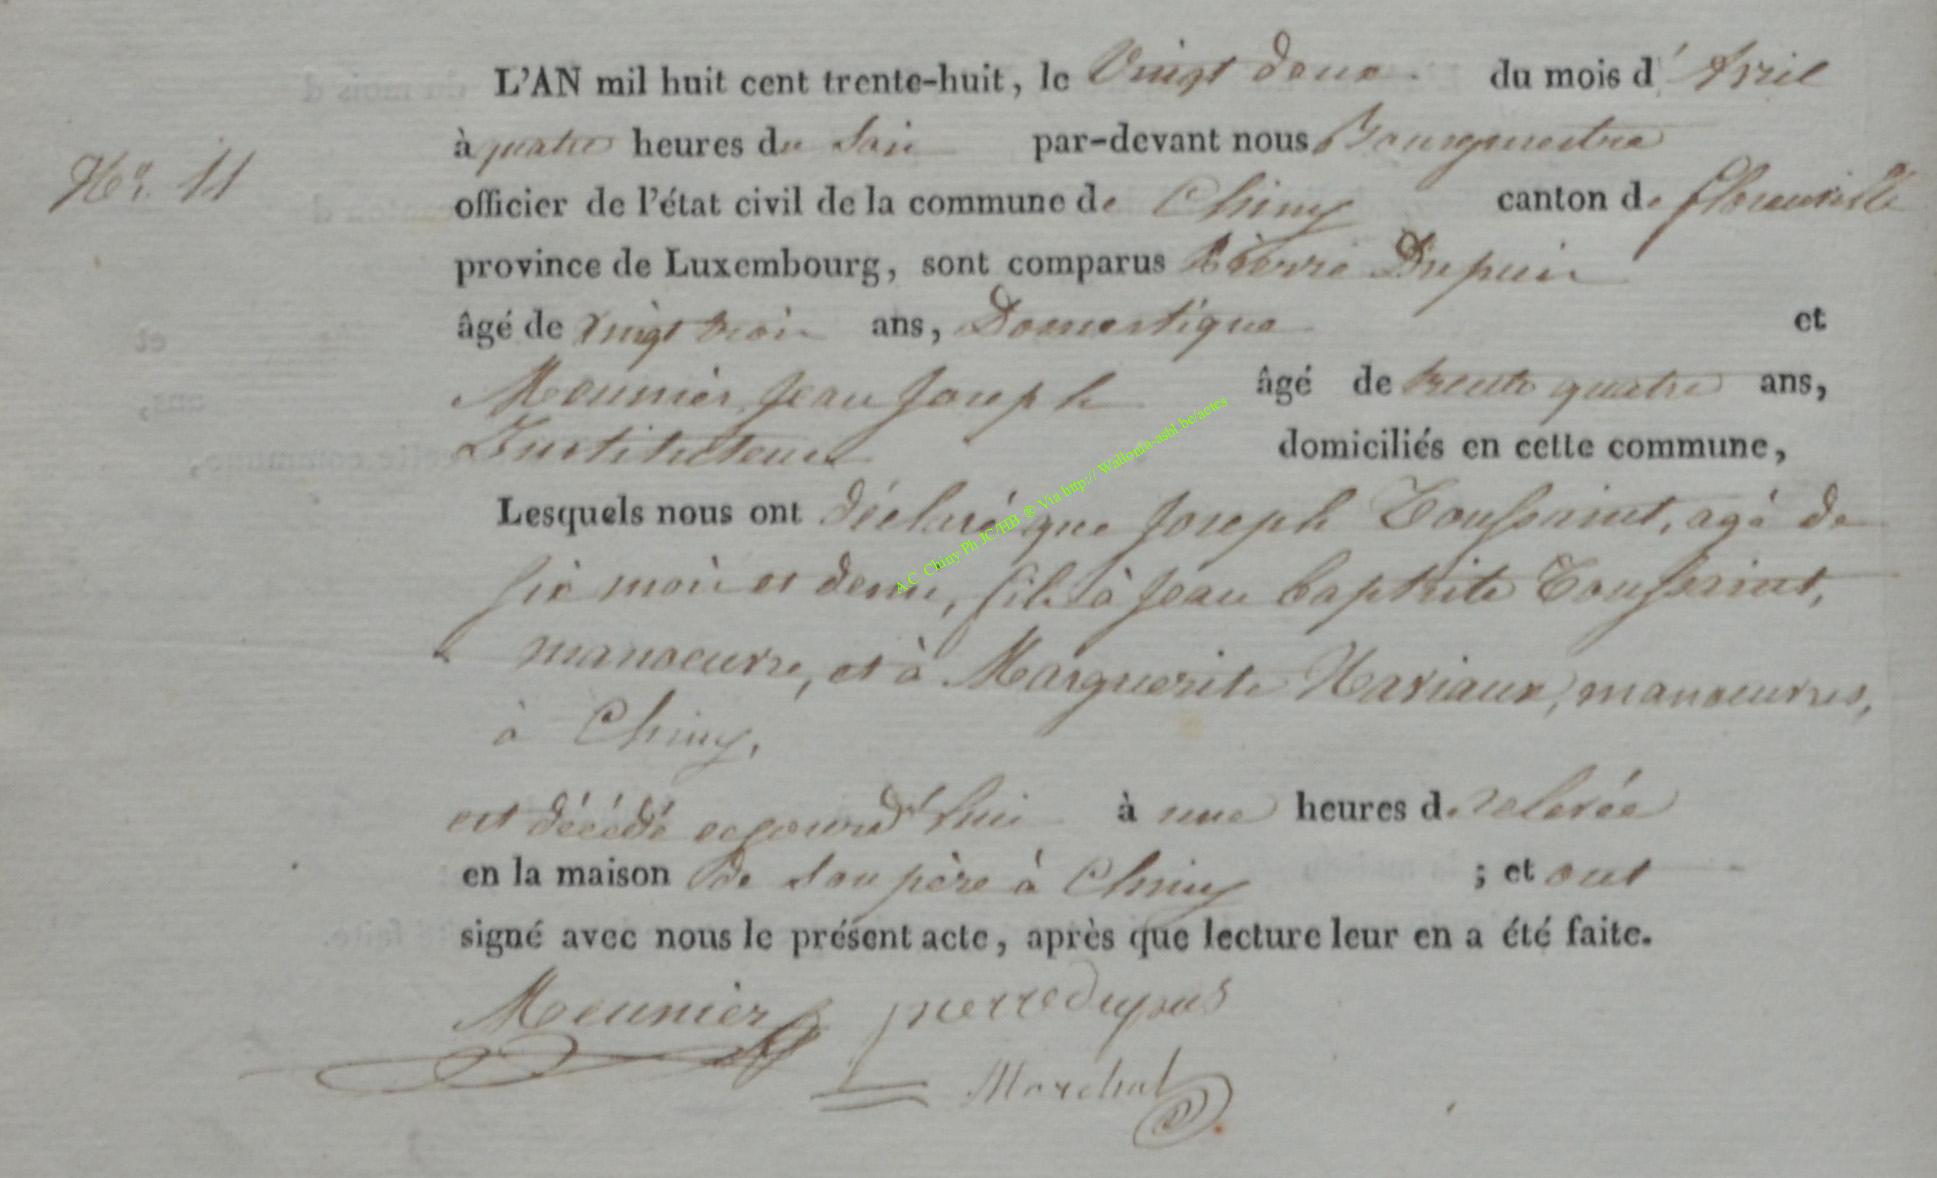 L'AN mil huit cent trente-huit, le Vingt deux du mois d'Avril
Nº. 11
à quatre heures du Soir par-devant nous Bourguemestre
officier de l'état civil de la commune de Chiny canton de florenville
province de Luxembourg, sont comparus Pierre Dupuis
âgé de vingt trois ans, Domestique et
Meunier Jean Joseph âgé de trente quatre ans,
Instituteur domiciliés en cette commune,
Lesquels nous ont déclaré que Joseph Toussaint, agé de
six mois et demi, fils à Jean baptiste Toussaint,
manoeuvre, et à Marguerite Haviaux, manoeuvres,
à Chiny,
est décédé aujourd'hui à une heures de relevée
en la maison de son père à Chiny ; et ont
signé avec nous le présent acte, après que lecture leur en a été faite.
Meunier pierre dupuis
Marchal
A.C. Chiny Ph JC/HB ® Via http:// Wallonia-asbl.be/actes